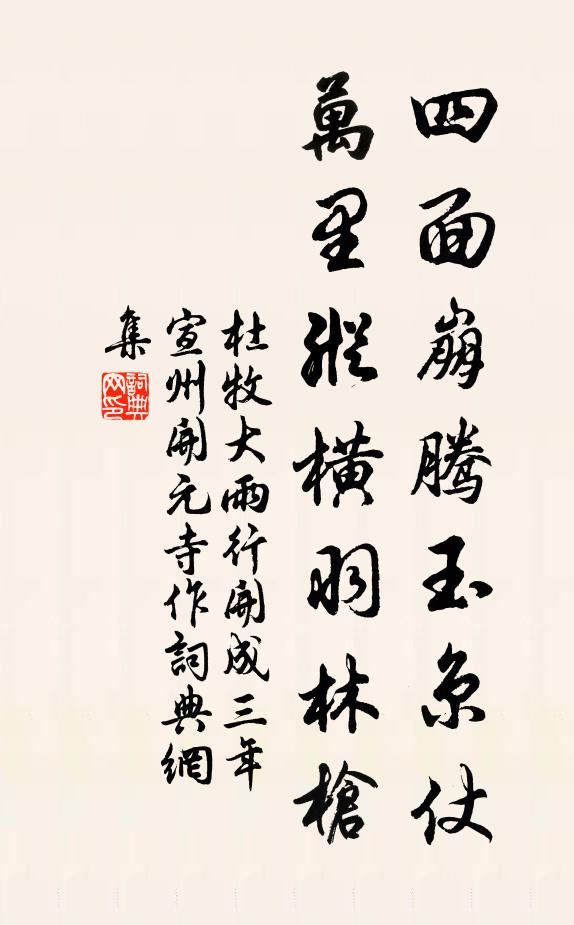 四面崩騰玉京仗
萬里縱橫羽林槍
杜牧大雨行開成三年
宣州開元寺作詞典網
集
詞典
网印